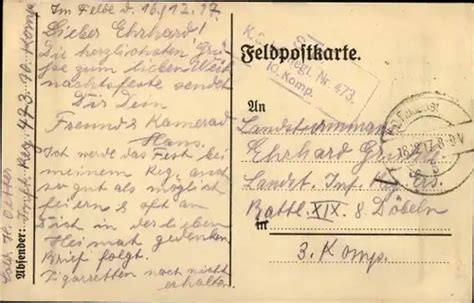 Im Felde d. 16/12.17
Lieber Ehrhard!
Die herzlichsten Grü-
sse zum lieben Weih
nachtsfeste sendet
Dir Dein
Freund & Kamerad
Hans.
Ich werde das Fest bei
meinem Reg. auch
so gut als möglich
feiern & oft an
Dich in der lieben
Heimat gedenken
Brief folgt.
Zigarretten noch nicht
erhalten
Absender:
Inft. Reg. 473. 10. Komp.
Feldpostkarte.
Regt. Nr. 473.
10. Komp.
16.12.17. 8-9V
An
Landsturmmann
Ehrhard
Landst. Inf. Ers.
Battl. XIX. 8 Döbeln
in
3. Komp.